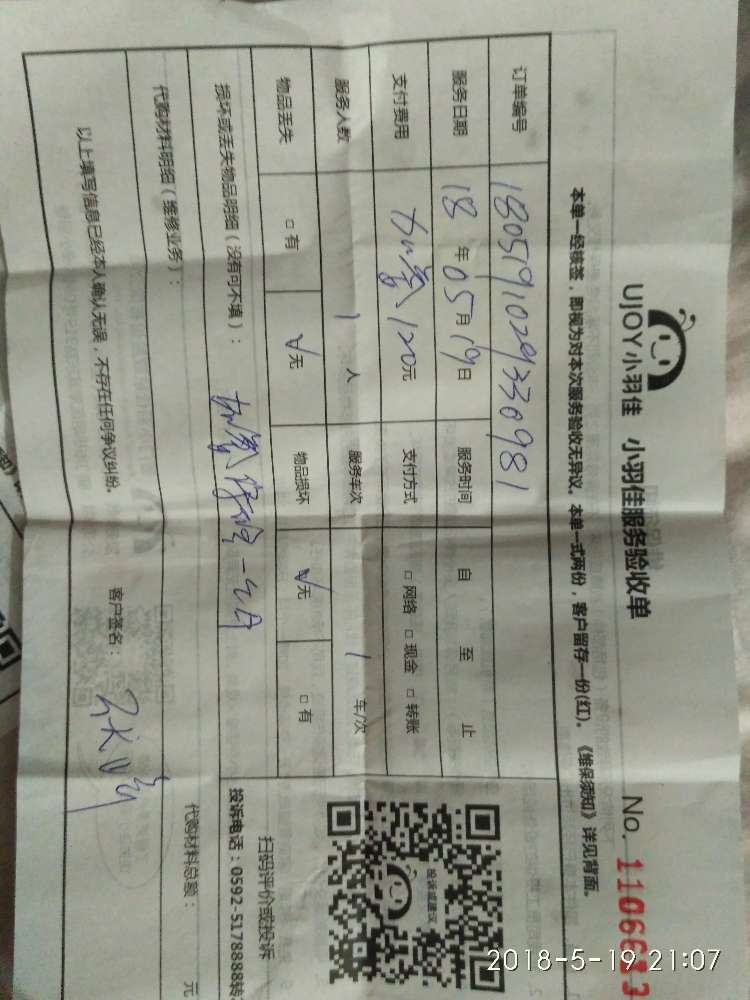 UJOY小羽佳 小羽佳服务验收单 No. 1106613
本单一经核签，即视为对本次服务验收无异议。本单一式两份，客户留存一份(红)。《维保须知》详见背面。
订单编号 180519102933098 1
服务日期 18 年 05 月 19 日 服务时间 自 至 止
支付费用 加氟 120元 支付方式 □ 网络 □ 现金 □ 转账
服务人数 1 人 服务车次 1 车/次
物品丢失 □ 有 √ 无 物品损坏 √ 无 □ 有
损坏或丢失物品明细（没有可不填）： 加氟保
代购材料明细（维修业务）： 代购材料总额： 元
以上填写信息已经本人确认无误，不存在任何争议纠纷。 客户签名：
投诉或建议
扫码评价或投诉
投诉电话：0592-5178888转
2018-5-19 21:07